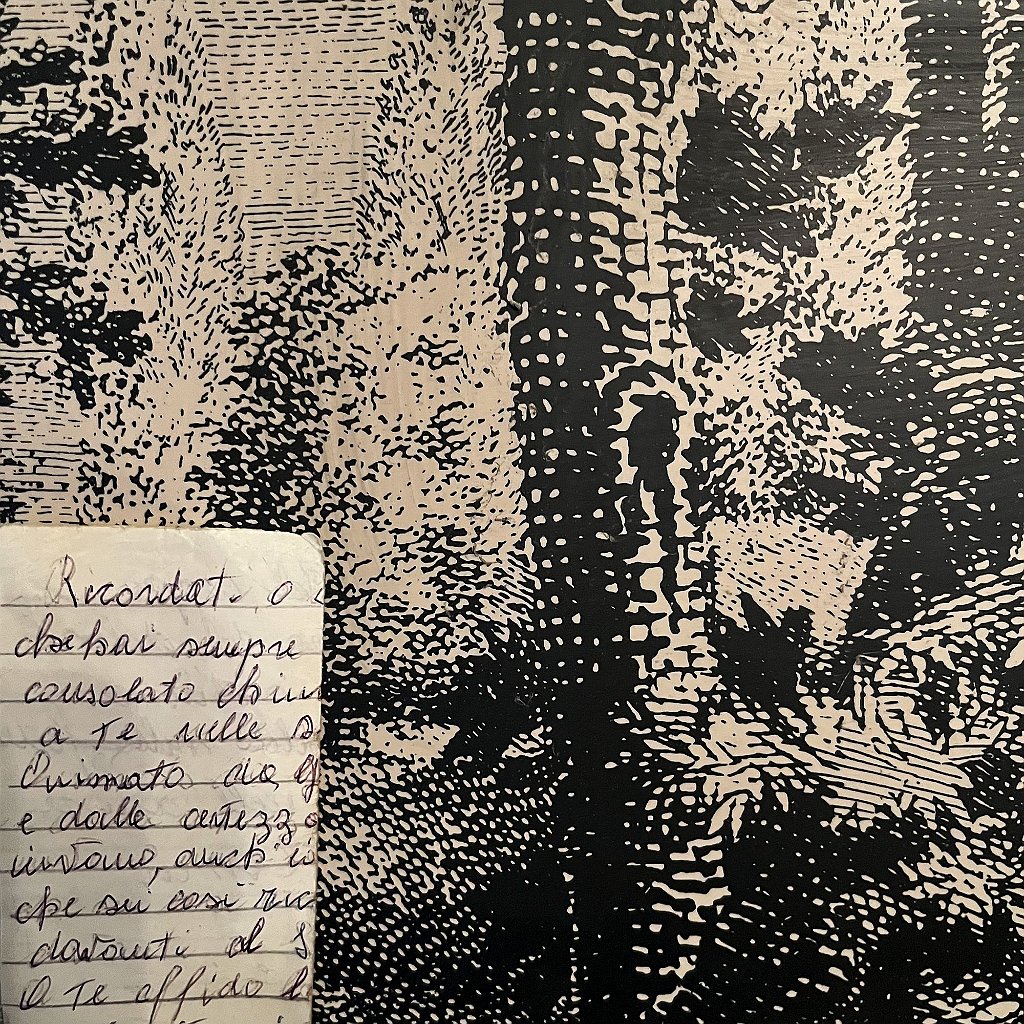 Ricordati o
che hai sempre
consolato chi
a Te nelle
Animato da
e dalle certezza
invano, anch'io
che sei così
davanti al S
A Te affido